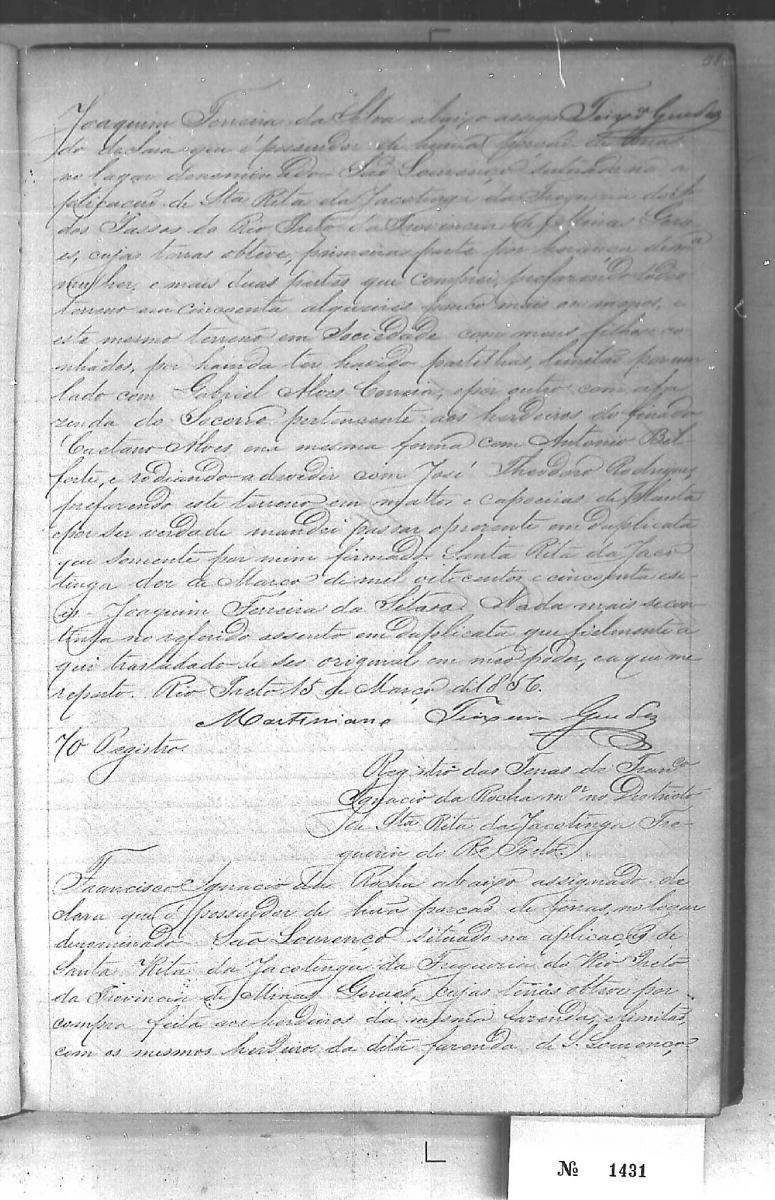 31
Joaquim Ferreira da Silva abaixo assigna Teixr.a Guedes
do declara que é possuidor de huma porção de terras
no lugar denominado São Lourenço situado na a
plicação de Sta Rita da Jacotinga da Freguezia do Sr.
dos Passos do Rio Preto da Provincia de Minas Gera
es, cujas terras obteve, primeira parte por herança de m.a
mulher, e mais duas partes que comprei, prefazendo todo
terreno em cincoenta alqueires pouco mais ou menos, e
este mesmo terreno em Sociedade com meus filhos e cu
nhados, por hainda ter havido partilhas, limitas por um
lado com Gabriel Alves Correia, e por outro com a fa
zenda do Socorro pertencente aos herdeiros do finado
Caetano Alves, e na mesma forma com Antonio Bel
forte, e rodiando a devedir com José Theodoro Rodrigues,
prefazendo este terreno em mattos e capoeiras de Planta
e por ser verdade mandei passar o prezente em duplicata
que somente por mim firmado. Santa Rita da Jaco
tinga dez de Março de mil oito centos e cincoenta e se
is. Joaquim Ferreira da Silva. Nada mais se con
tinha no referido assento em duplicata que fielmente a
qui trasladado é seo original em meo poder, e a que me
reporto. Rio Preto 15 de Março de 1856.
Martiniano Teixeira Guedes
70 Registro
Registro das Terras de Fran.co
Ignacio da Rocha m.or no Destricto
de Sta Rita da Jacotinga Fre
guezia do Rio Preto.
Francisco Ignacio da Rocha abaixo assignado de
clara que é possuidor de huã porcaõ de terras, no lugar
denominado São Lourenço situado na aplicação de
Santa Rita da Jacotinga da Freguezia do Rio Preto
da Provincia de Minas Geraes, cujas terras obteve por
compra feita aos herdeiros da mesma fazenda, e limitas,
com os mesmos herdeiros da dita fazenda de S. Lourenço,
Nº 1431